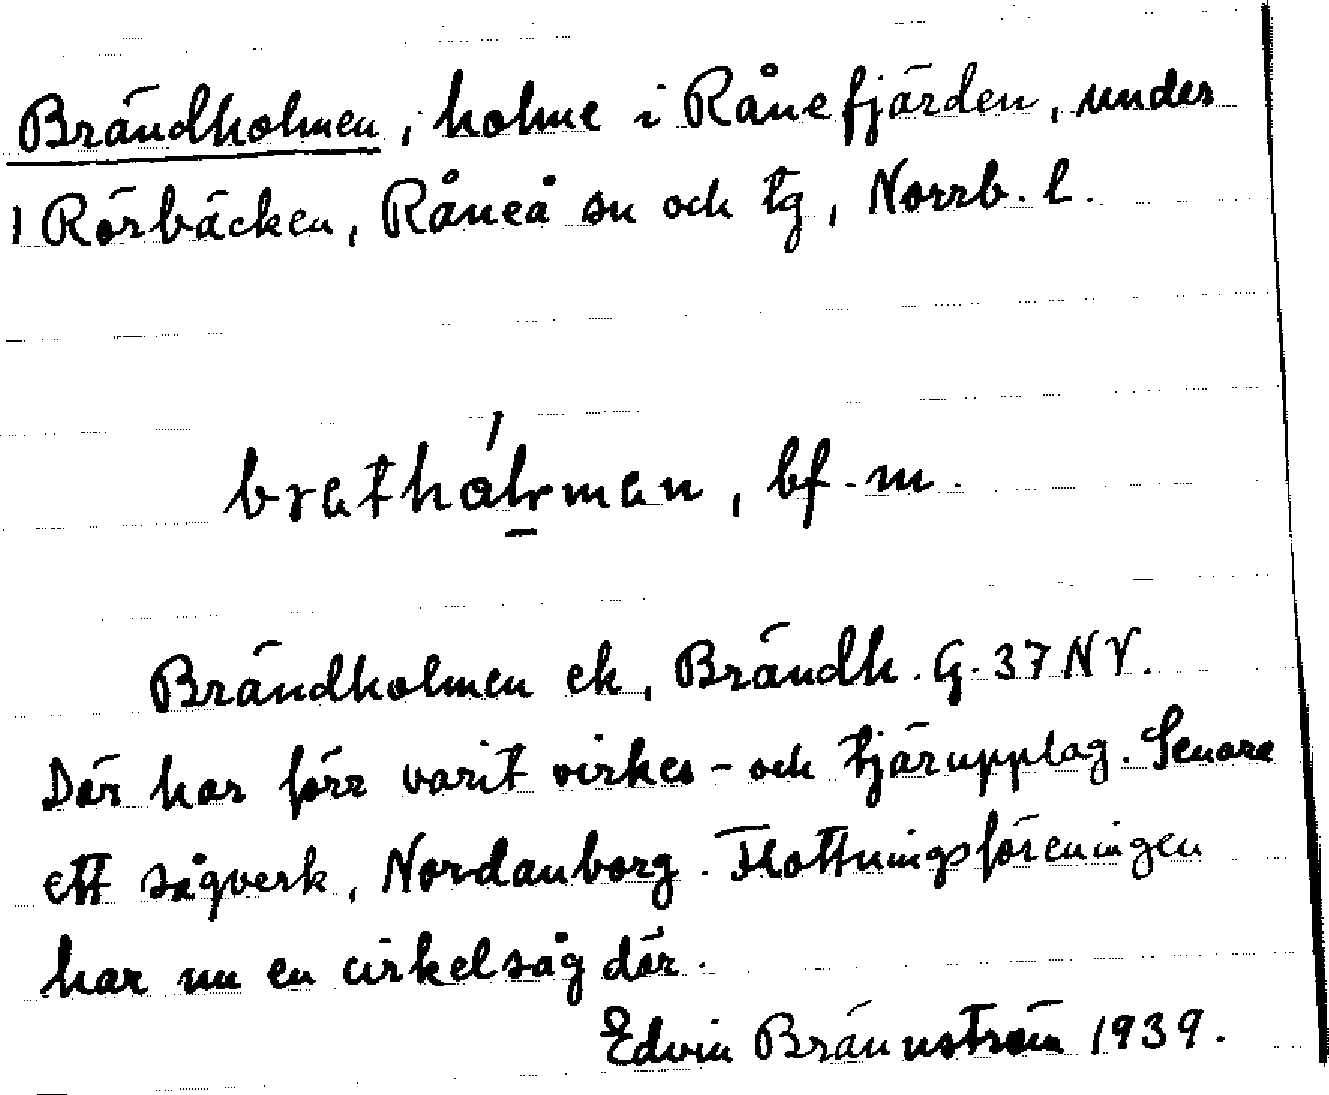 Brändholmen, holme i Rånefjärden, under
1 Rörbäcken, Råneå sn och tg, Norrb. l.
brethålmen, bf. m.
Brändholmen ek, Brändh. G. 37 NV.
Där har förr varit virkes- och tjärupplag. Senare
ett sågverk, Nordanborg. Flottningsföreningen
har nu en cirkelsåg där.
Edvin Brännström 1939.